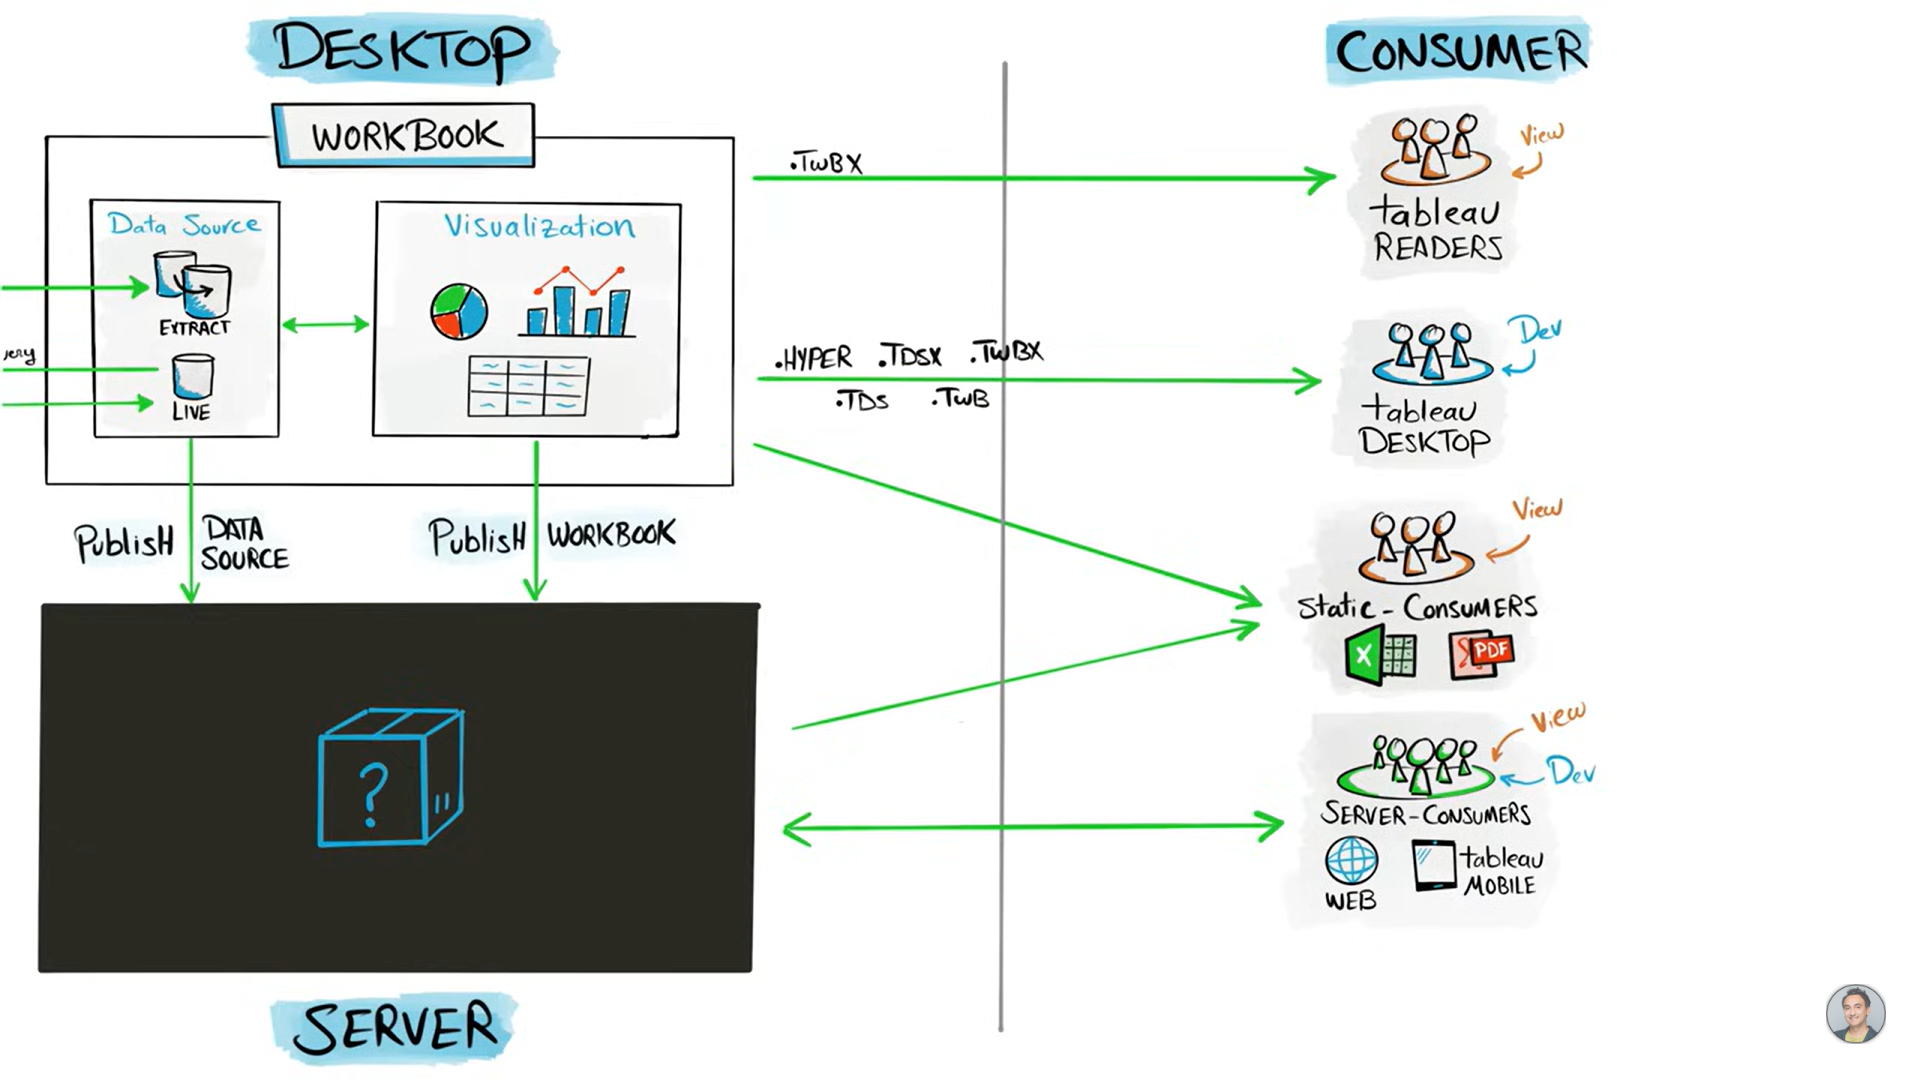 DESKTOP
WORKBOOK
Data Source
EXTRACT
LIVE
Visualization
PUBLISH DATA SOURCE
PUBLISH WORKBOOK
?
SERVER
.TWBX
.HYPER .TDSX .TWBX
.TDS .TWB
CONSUMER
View
tableau
READERS
Dev
tableau
DESKTOP
View
Static-CONSUMERS
X
PDF
View
Dev
SERVER-CONSUMERS
WEB
tableau
MOBILE